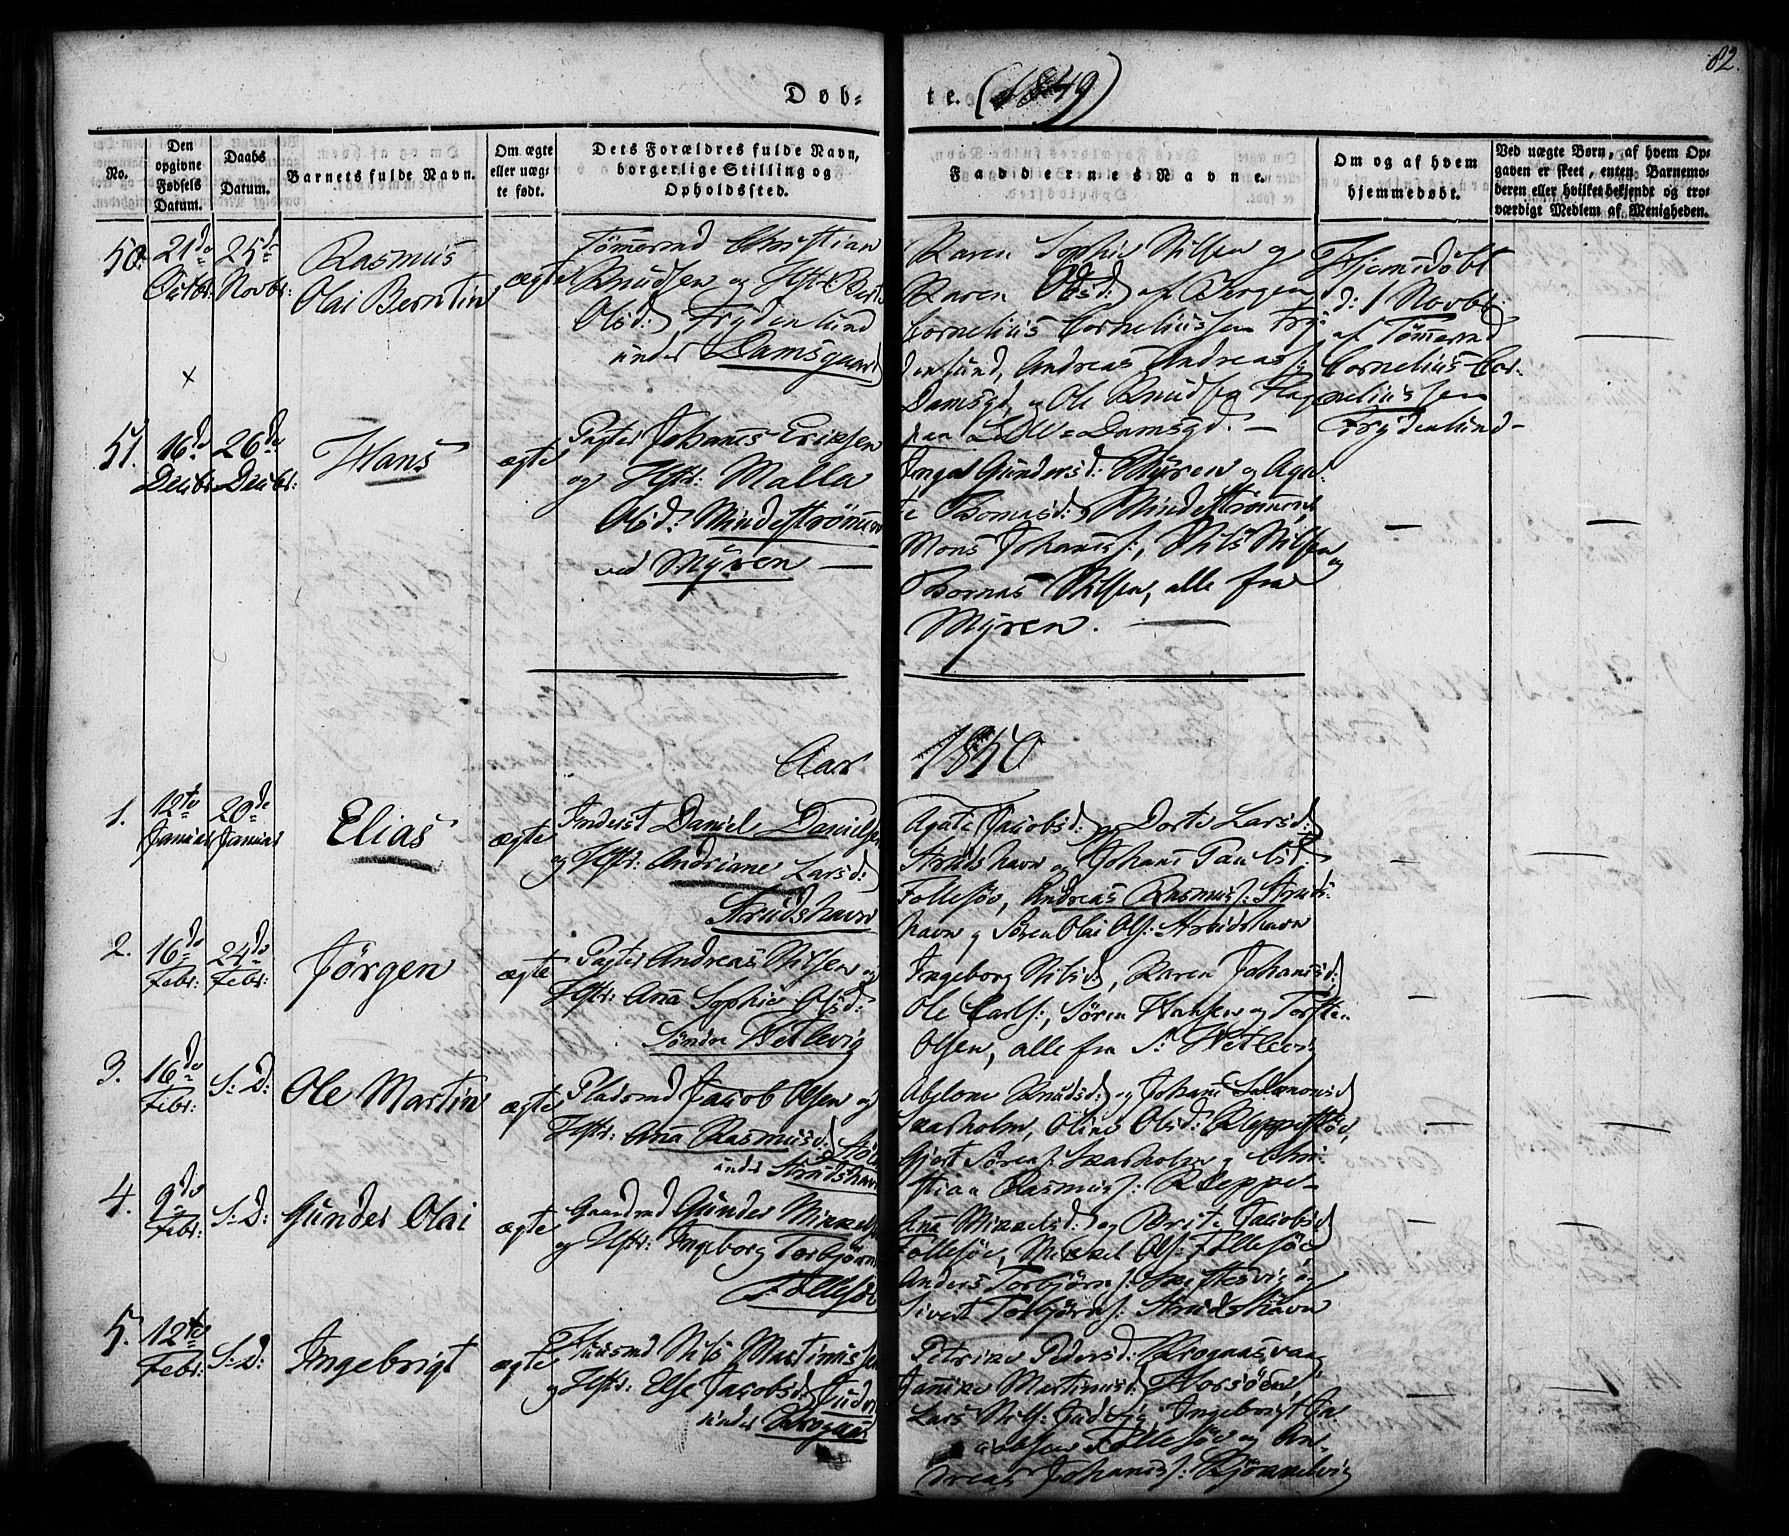 82.
Døb-te. (1849)
No.
Den opgivne Fødsels Datum.
Daabs Datum.
Barnets fulde Navn.
Om ægte eller uægte født.
Dets Forældres fulde Navn, borgerlige Stilling og Opholdssted.
Faddernes Navne.
Om og af hvem hjemmedøbt.
Ved uægte Børn, af hvem Opgaven er skeet, enten Barnemoderen eller hvilket bekjendt og troværdigt Medlem af Menigheden.
50.
21de Octbr:
25de Novbr:
Rasmus
Olai Berntin
ægte
Tømmermd Christian
Knudsen og Hstr: Berte
Olsd: Frydenlund
under Damsgaard
Karen Sophie Nilsen og
Karen Olsd: af Bergen
Cornelius Corneliussen Fry-
denlund, Andreas Andreass:
Damsgd, og Ole Knudsen
paa Damsgd. —
Hjemdøbt
d: 1 Novbr:
af Tømermd
Cornelius Cor-
neliussen
Frydenlund —
—
51.
16de Decbr
26de Decbr:
Hans
ægte
Pagter Johanes Eriksen
og Hstr: Malla
Olsd: Mindestrømmen
ved Myren —
Ingel Gundersd: Myren og Aga-
te Thomasd: Mindestrømmen,
Mons Johaness:, Nils Nilsen og
Thomas Nilsen, alle fra
Myren. —
—
—
Aar 1850
1.
12te Januar
20de Januar
Elias
ægte
Inderst Daniel Danielsen
og Hstr: Andriane Larsd:
Strudshavn
Agate Jacobsd: og Dorte Larsd:
Strudshavn og Johans Paulsd:
Follesøv, Andreas Rasmuss: Struds-
havn og Søren Olai Ols: Strudshavn
—
—
2.
16de Febr:
24de Febr:
Jørgen
ægte
Pagter Andreas Nilsen og
Hstr: Ana Sophie Olsd:
Søndre Hetlevig
Ingeborg Nilsd:, Karen Johanesd:
Ole Carls:, Søren Hansen og Torsten
Olsen, alle fra S: Hetlevig
—
—
3.
16de Febr:
S: D:
Ole Martin
ægte
Pladsmd Jacob Olsen og
Hstr: Ana Rasmusd:
under Strudshavn
Abelone Knudsd: og Johane Salamonsd
Skarholm, Oline Olsd: Kleppestøe,
Gjert Sørens: Skarholm og Chri-
stian Rasmuss: Kleppe—
—
—
4.
9de Febr:
S: D:
Gunder Olai
ægte
Gaardmd Gunder Mikkels:
og Hstr: Ingeborg Torbjørns
Follesøv
Ana Mikkelsd: og Brite Jacobsd
Follesøv, Mikkel Ols: Follesøv
Anders Torbjørns: Skiftesvig og
Sivert Torbjørns: Strudshavn
—
—
5.
12te Febr:
S: D:
Ingebrigt
ægte
Huusmd Nils Martinussen
og Hstr: Else Jacobsd:
under Krogaas
Petrine Pedersd: Krogaasvaag
Janike Martinusd: Horsøen,
Lars Nils: Ingebrigt Ja-
cobsen Follesøv og An-
dreas Johaness: Kjøkkelvig
—
—